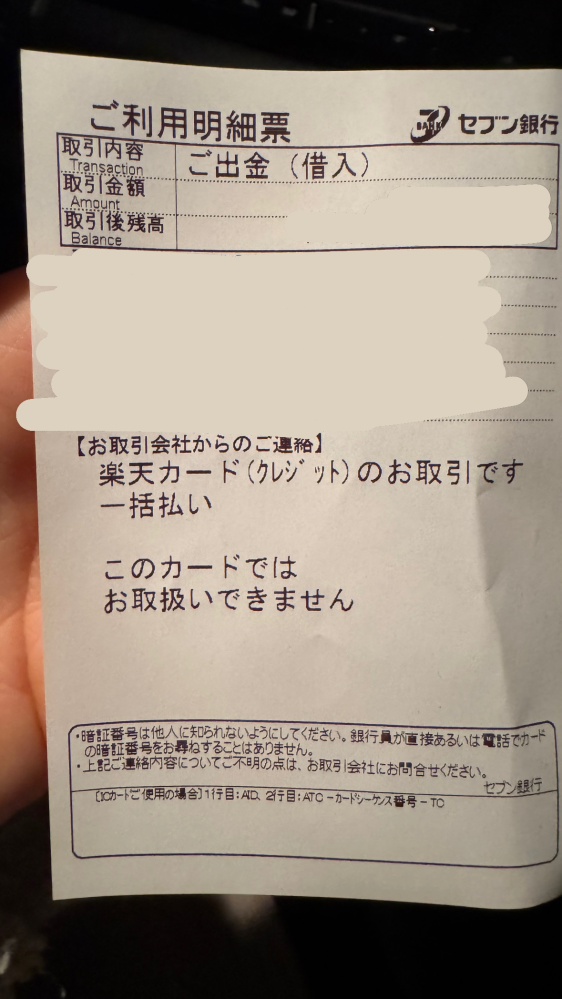 ご利用明細票
BANK セブン銀行
取引内容 ご出金（借入）
Transaction
取引金額
Amount
取引後残高
Balance
【お取引会社からのご連絡】
楽天カード(ｸﾚｼﾞｯﾄ)のお取引です
一括払い
このカードでは
お取扱いできません
・暗証番号は他人に知られないようにしてください。銀行員が直接あるいは電話でカード
の暗証番号をお尋ねすることはありません。
・上記ご連絡内容についてご不明の点は、お取引会社にお問合せください。
セブン銀行
〔ICカードご使用の場合〕1行目：AID、2行目：ATC－カードシーケンス番号－TC